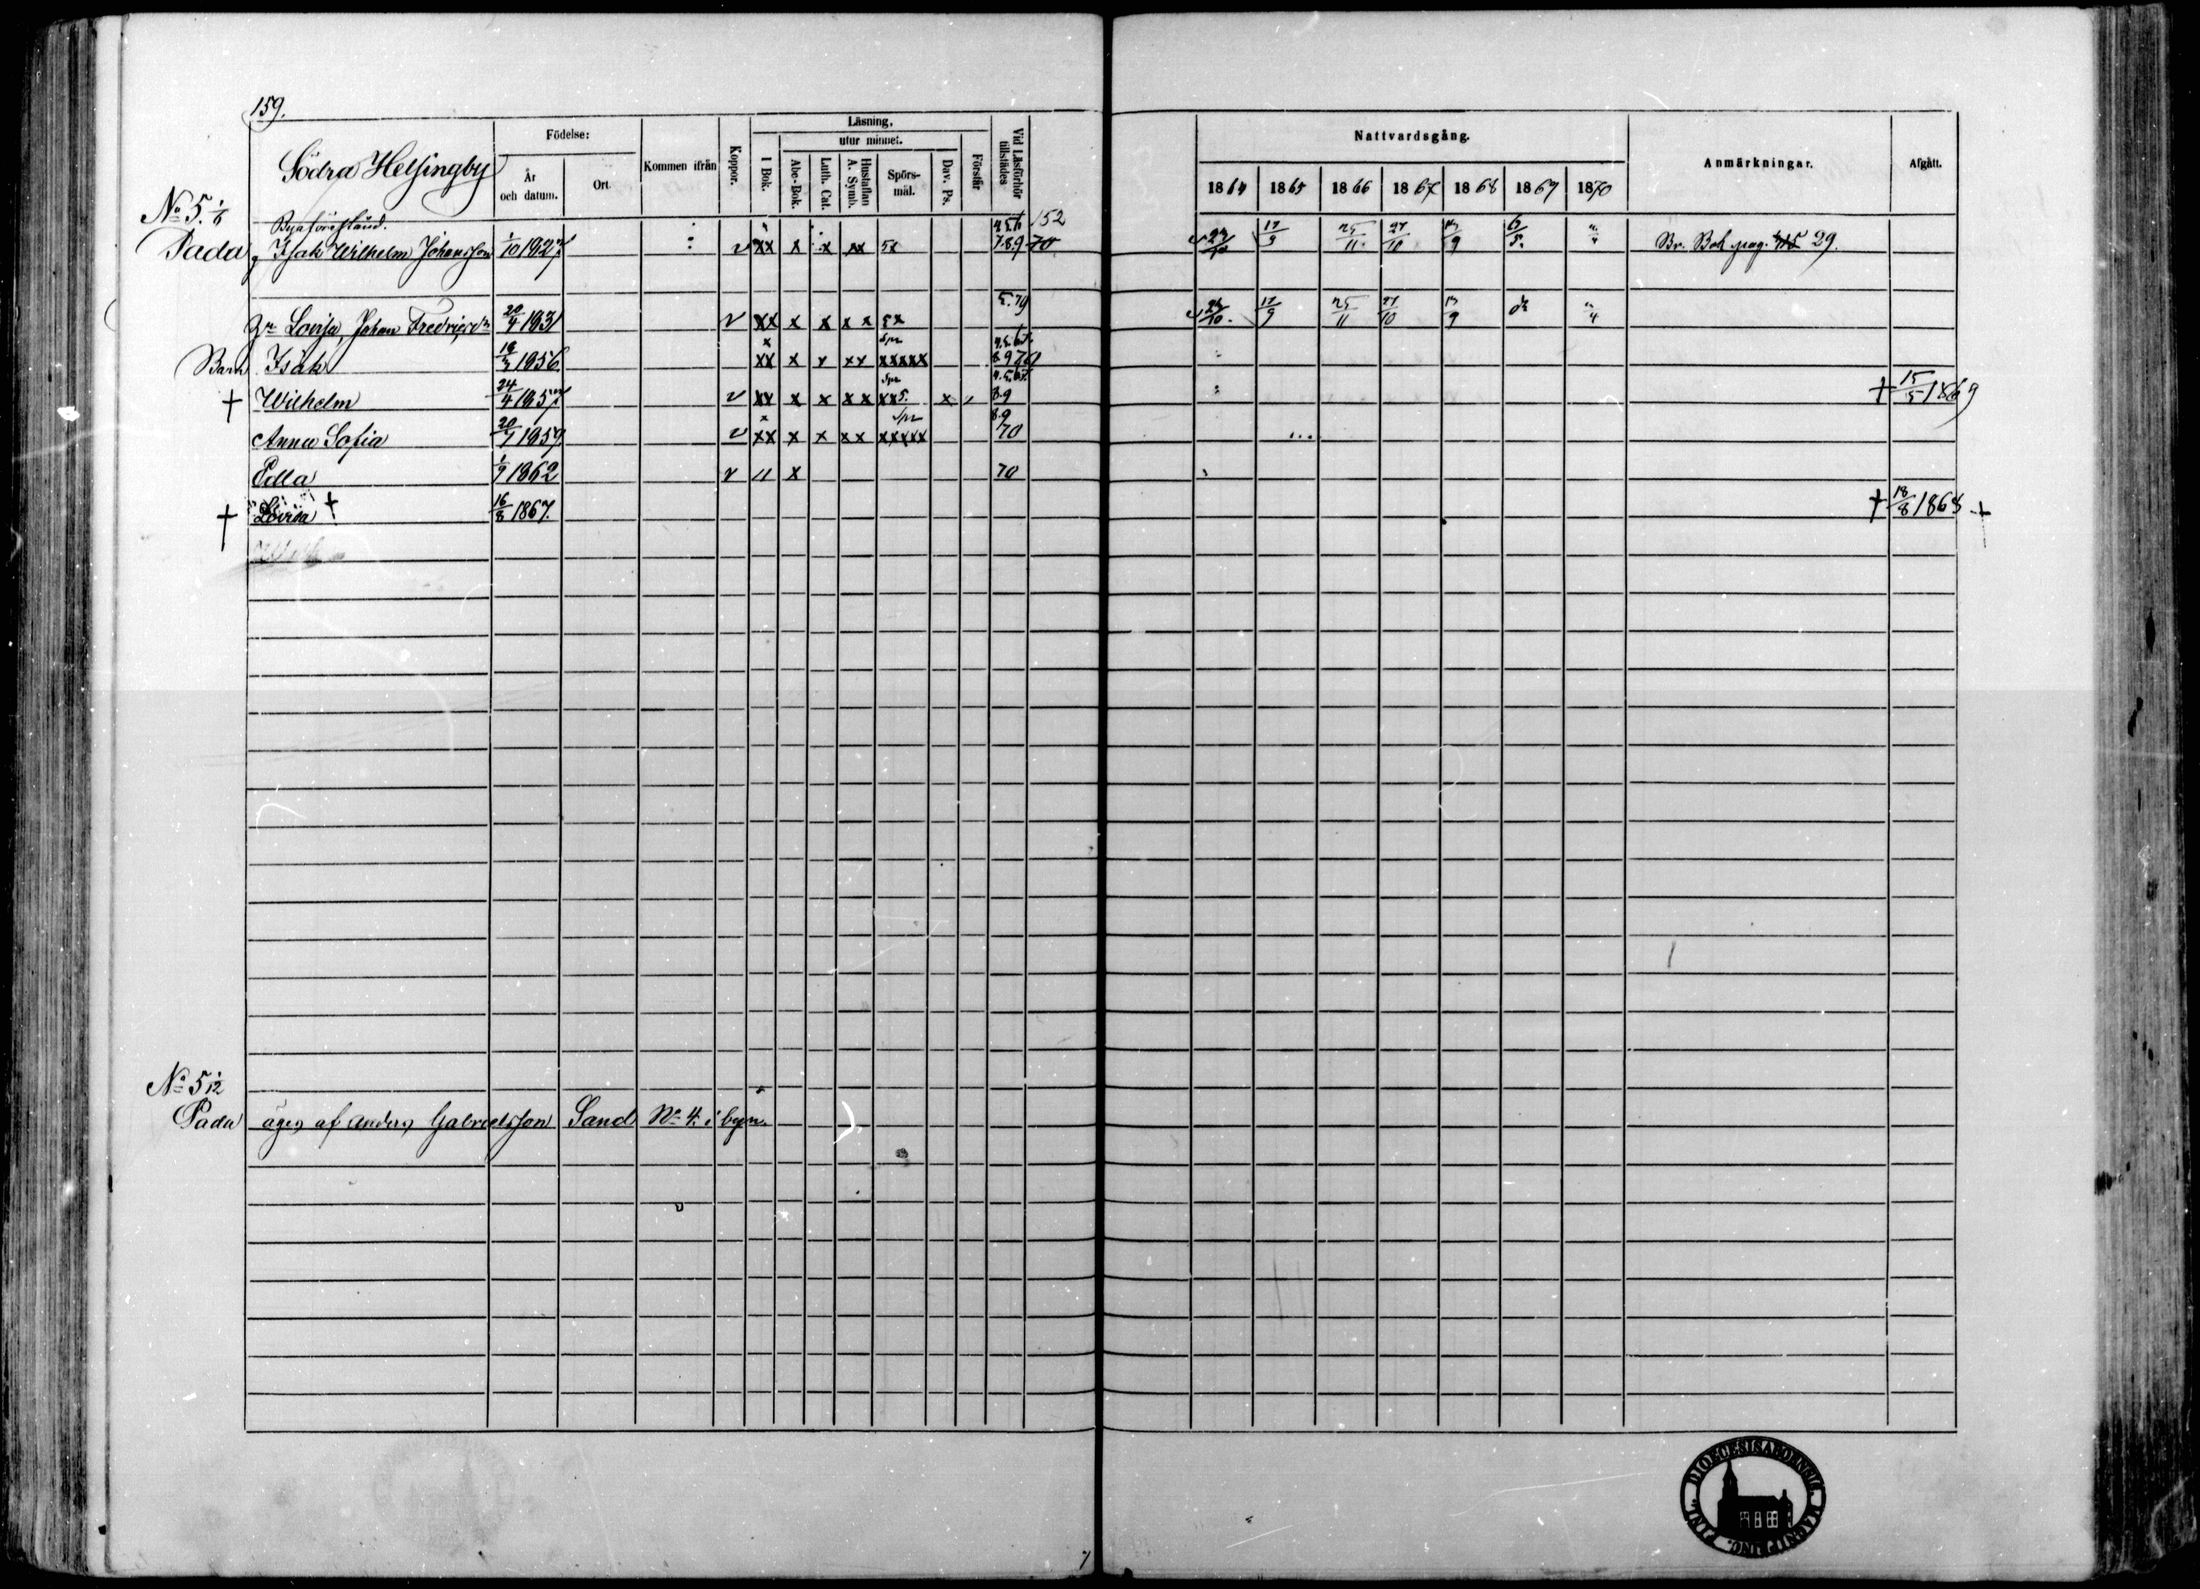 159.
Södra Helsingby
Födelse:
År och datum.
Ort
Kommen ifrån
Koppor.
Läsning,
utur minnet.
I Bok.
Abc-Bok.
Luth. Cat.
Hustaflan A. Symb.
Spörs- mål.
Dav. Ps.
Förstår
Vid Läsförhör tillstädes
Nattvardsgång.
1864 1865 1866 1867 1868 1869 1870
Anmärkningar.
Afgått.
No 5. 1/6
4 5 6 152
Pada Isak Wilhelm Johansson 1/10 1827 v xx x x xx 5x 7 8 9 70 17/9 25/11 27/10 6/5 Br. Bok pag. 29.
5. 79
Lovisa, Johan Fredriksdr 20/4 1831 v xx x x x x 5x 17/9 25/11 27/10
Barn Isak 1856 xx x x xx xxxxx 8 9 70
† Wilhelm 24/4 1857 v xx x x x x xx5. x 8 9 † 15/5 1869
8 9
Anna Sofia 20/7 1859 v xx x x xx xxxxx 70
Edla 1/9 1862 v 11 x 70
† Lovisa † 16/8 1867. † 18/8 1868 †
No 5 1/12
Pada äges af Anders Gabrielsson Sand No 4 i byn.
SIGILL. DIOECESIS ABOENSIS. MAGNI PRINC. FINL.